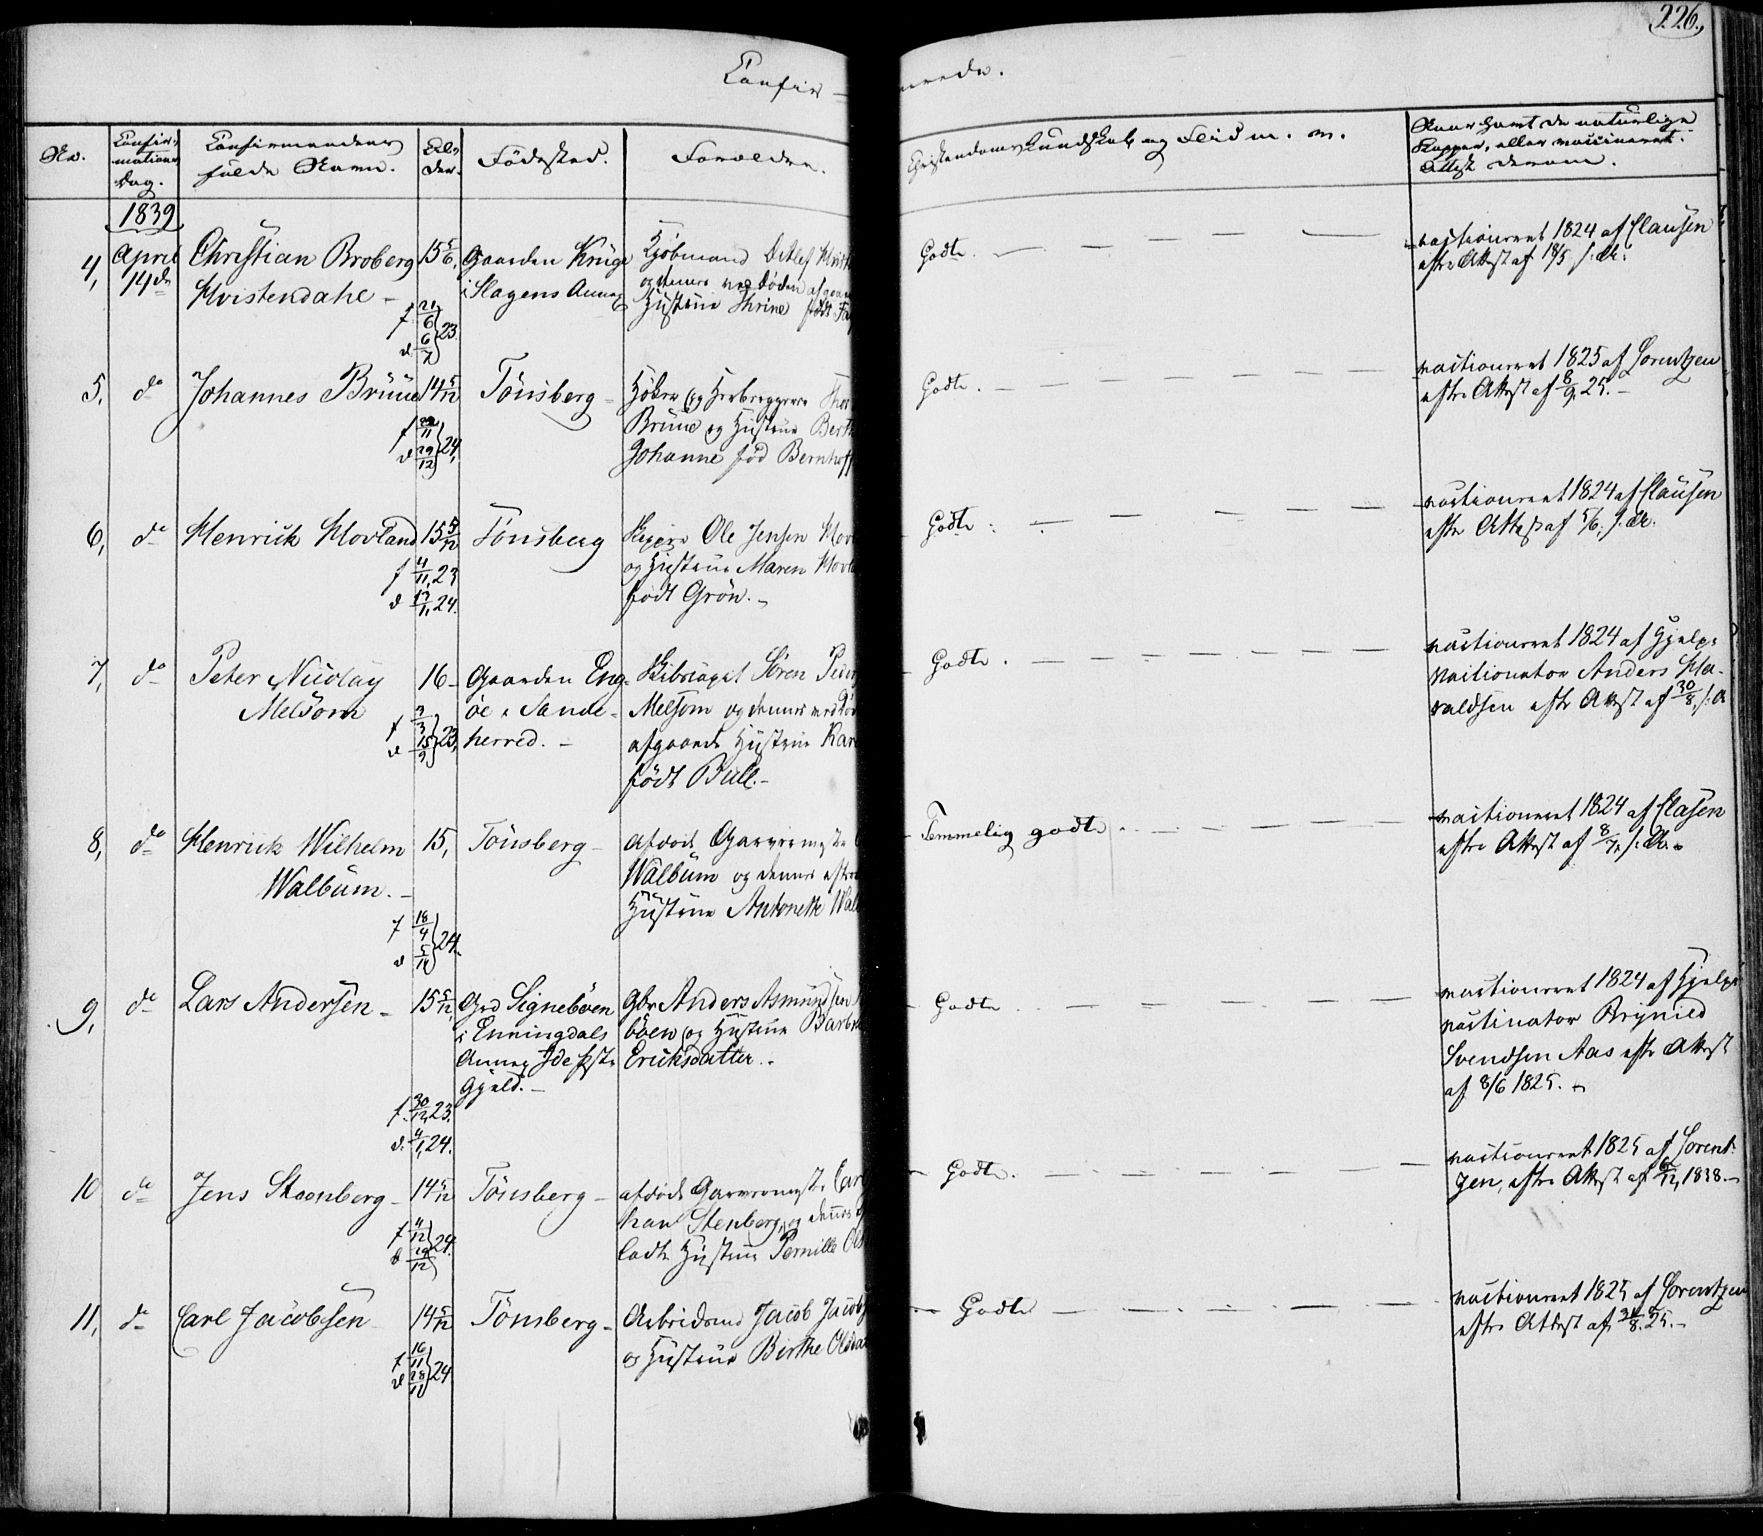 226.
Confir-
merede.
No.
Confir-
mations
Dag.
Confirmandens
fulde Navn.
Al-
der.
Födested.
Forældre.
Christendoms Kundskab og Flid m. m.
Naar havt de naturlige
Kopper, eller vaccineret.
Attest derom.
1839
4,
April
14de
Christian Broberg
Hvistendahl -
15 5/6.
f 21/6
d. 6/7 } 23
Gaarden Kruge
i Slagens Annex
Kjöbmand Detlef Hvist
og dennes ved Döden afgaa
Hustrue Thrine född Fa
Godt.
vaccineret 1824 af Clausen
eftr Attest af 18/5 s. A:
5,
do
Johannes Brüne
14 5/12
f 22/11
d 29/12 } 24.
Tönsberg -
Höker og Herbergerer Thor
Brüne og Hustrue Berth
Johanne född Bernhoff
Godt.
vaccineret 1825 af Lorentzen
eftr Attest af 8/9 25. -
6,
do
Henrick Hovland
15 5/12
f 4/11, 23
d 17/1, 24.
Tönsberg
Ole Jensen Hov
og Hustrue Maren Hovla
född Grön. -
Godt.
vaccineret 1824 af Clausen
eftr Attest af 5/6. s. A.
7,
do
Peter Nicolay
Melsom
16 -
f 3/3
d 15/9 } 23,
Gaarden Eng-
öe i Sande-
herred. -
Skibscapt Sören Peder
Melsom og dennes ved Död
afgaaede Hustrue Kare
född Bull. -
Godt.
vaccineret 1824 af Hjelpe
vaccinatör Anders Ha-
raldsen eftr Attest af 30/8, s. A
8,
do
Henrick Wilhelm
Walbum. -
15,
f 18/4
d 5/14 } 24.
Tönsberg -
afdöde Garvermester
Walbum og dennes efter
Hustrue Antonette Walb
Temmelig godt.
vaccineret 1824 af Clasen
eftr Attest af 8/7, s. A. -
9,
do
Lars Andersen -
15 5/12,
f. 30/12, 23.
d. 4/1, 24.
Grd Signeböen
i Enningdals
Annex Idefss
Gjeld. -
Gbr Anders Asmundsen
böen og Hustrue Barbr
Ericksdatter. -
Godt
vaccineret 1824 af Hjelpe
vaccinator Brynild
Svendsen Aas eftr Attest
af 8/6 1825. -
10
do
Jens Steenberg -
14 5/12
f 4/12
d 19/12 } 24.
Tönsberg -
afdöde Garvermester Carl
han Stenberg, og dennes
ladte Hustrue Pernille Ols
Godt.
vaccineret 1825 af Lorent-
zen, eftr Attest af 6/12, 1838. -
11,
do
Carl Jacobsen
14 5/12
f 16/11
d 28/11 } 24
Tönsberg -
Arbeidsmd Jacob Jacobs
og Hustrue Birthe Olsda
Godt
vaccineret 1825 af Lorentzen
eftr Attest af 31/8. 25. -